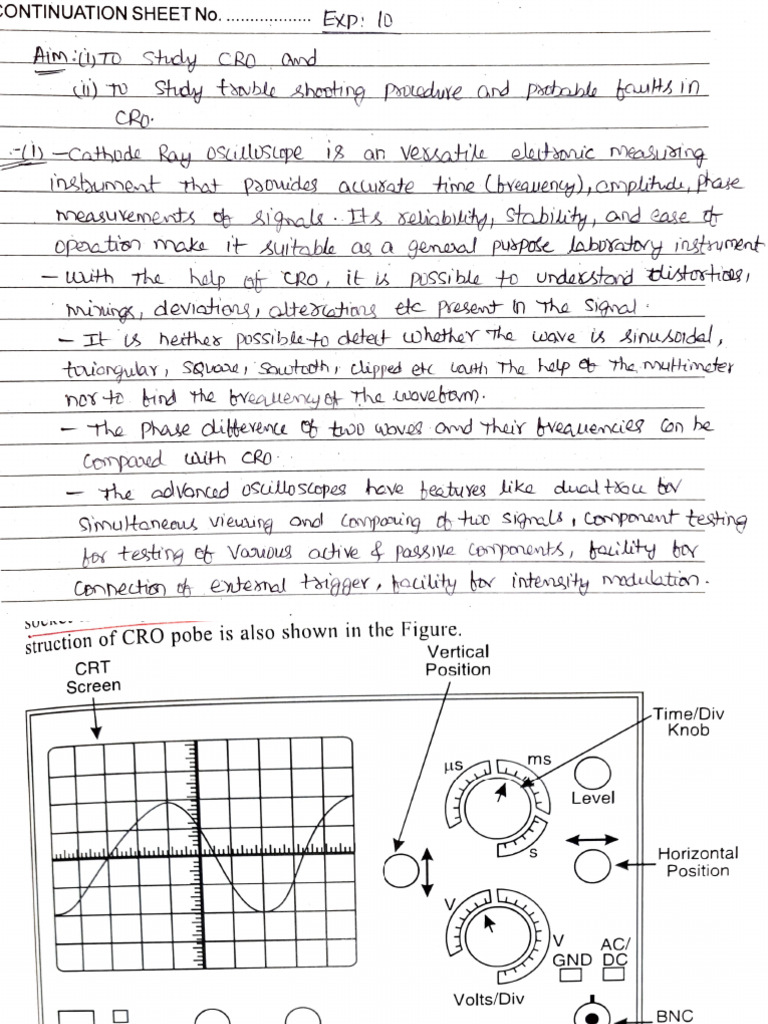 CONTINUATION SHEET No. ................... Exp: 10
Aim:(i) To study CRO and
(ii) to study trouble shooting procedure and probable faults in
CRO.
-(i) - Cathode Ray oscilloscope is an versatile electronic measuring
instrument that provides accurate time (frequency), amplitude, phase
measurements of signals. Its reliability, stability, and ease of
operation make it suitable as a general purpose laboratory instrument
- With the help of CRO, it is possible to understand distortions,
mixings, deviations, alterations etc present in the signal.
- It is neither possible to detect whether the wave is sinusoidal,
triangular, square, sawtooth, clipped etc with the help of the multimeter
nor to find the frequency of the waveform.
- The phase difference of two waves and their frequencies can be
compared with CRO.
- The advanced oscilloscopes have features like dual trace for
simultaneous viewing and comparing of two signals, component testing
for testing of various active & passive components, facility for
connection of external trigger, facility for intensity modulation.
struction of CRO pobe is also shown in the Figure.
CRT
Screen
Vertical
Position
Time/Div
Knob
µs
ms
Level
s
Horizontal
Position
V
V
GND
AC/
DC
Volts/Div
BNC